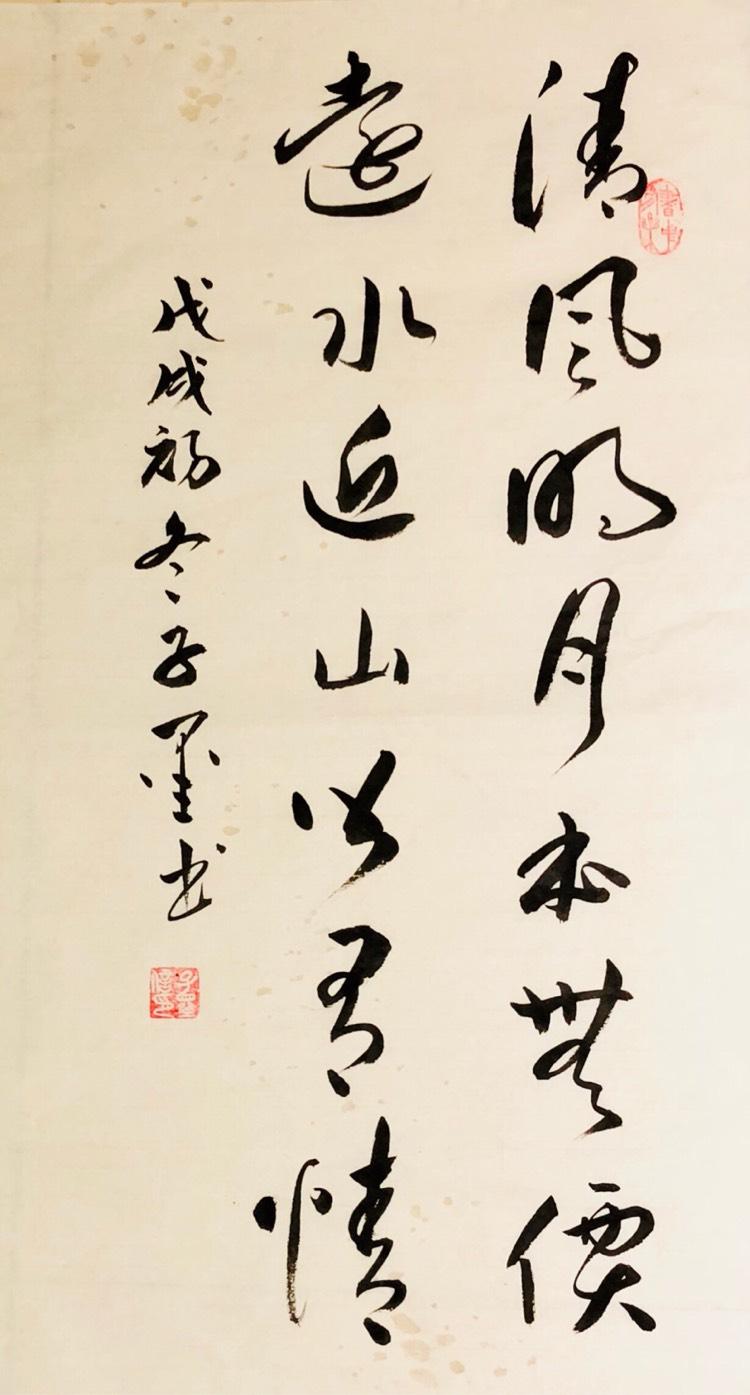 清風明月本無價
遠水近山皆有情
戊戌初冬子墨书
子墨信印